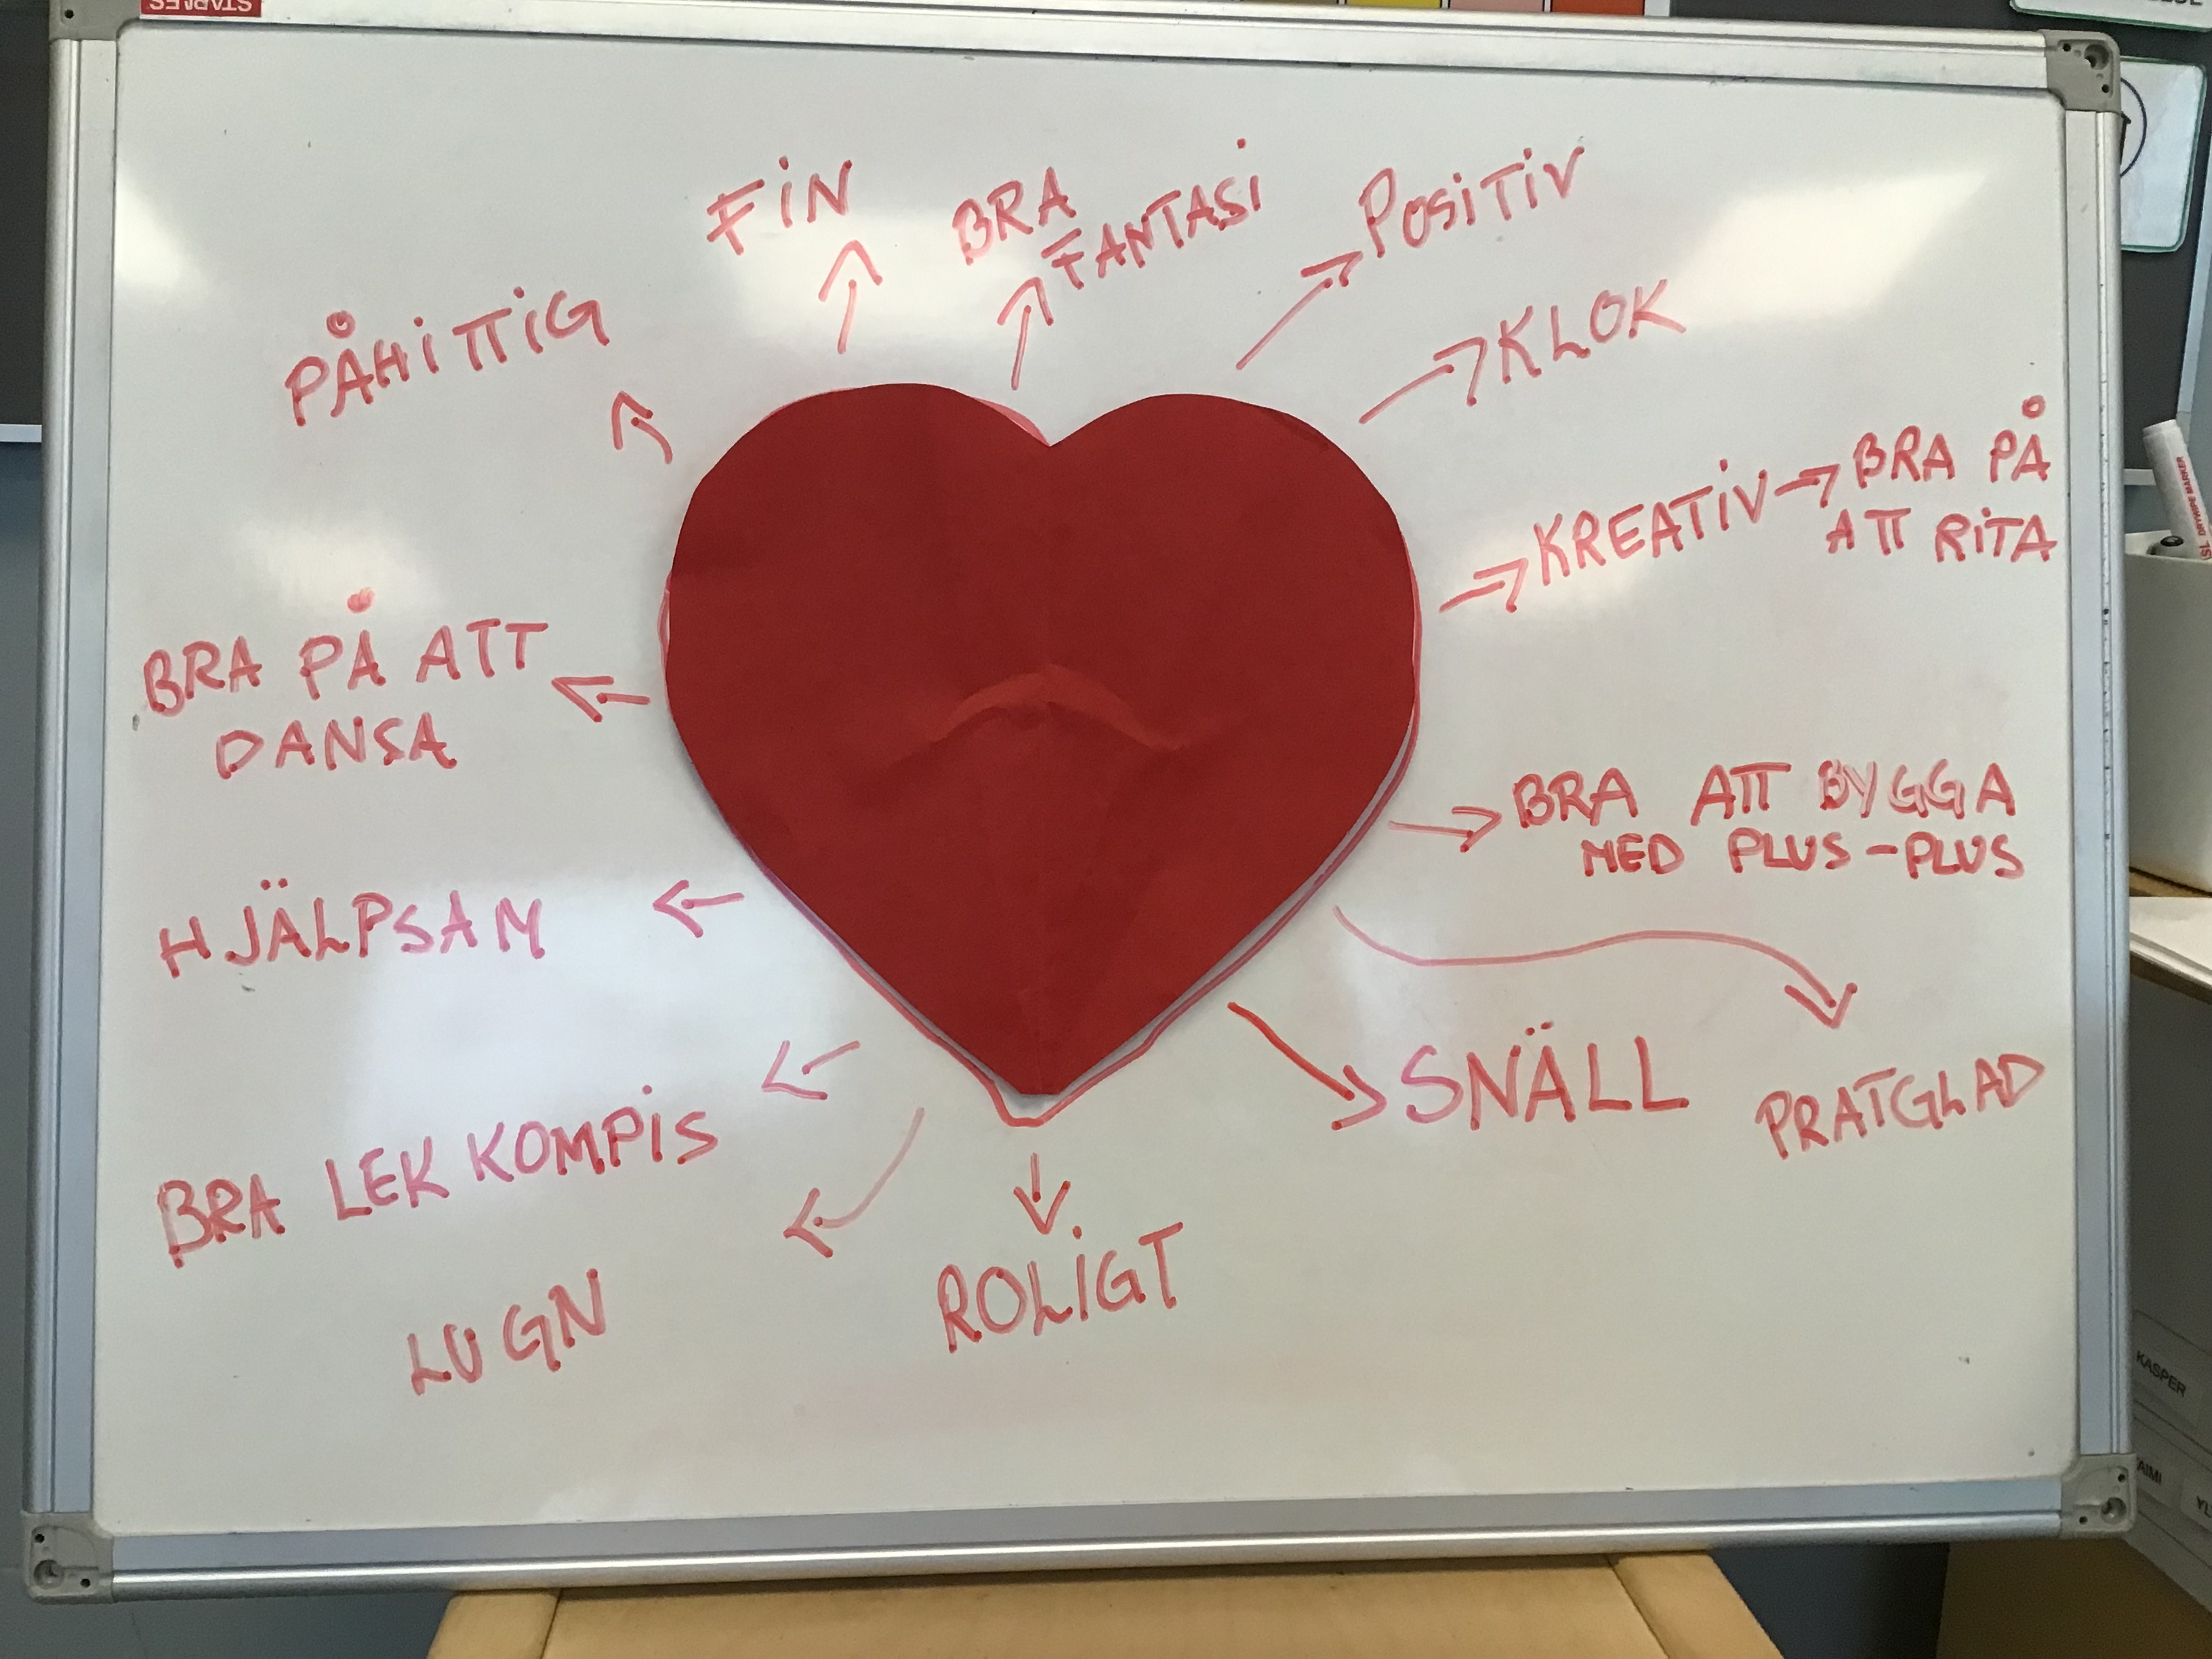 STAPLES
FIN
BRA
FANTASI
POSITIV
PÅHITTIG
KLOK
KREATIV → BRA PÅ
ATT RITA
BRA PÅ ATT
DANSA
BRA ATT BYGGA
MED PLUS-PLUS
HJÄLPSAM
SNÄLL
PRATGLAD
BRA LEK KOMPIS
LUGN
ROLIGT
DRYWIPE MARKER
KASPER